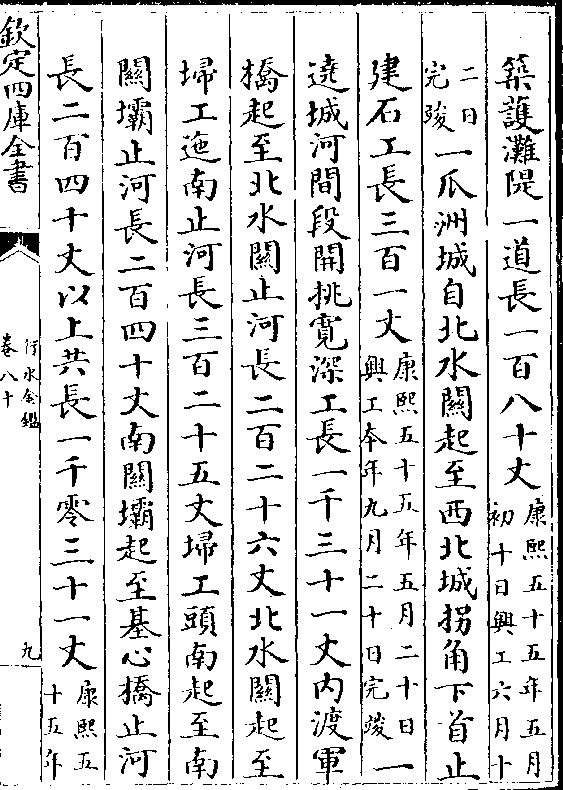 築護灘隄一道長一百八十丈康熙五十五年五月初十日興工六月十
二日完竣一瓜洲城自北水關起至西北城拐角下首止
建石工長三百一丈康熙五十五年五月二十日興工本年九月二十日完竣一
遶城河間段開挑寛深工長一千三十一丈内渡軍
橋起至北水關止河長二百二十六丈北水關起至
埽工迤南止河長三百二十五丈埽工頭南起至南
關壩止河長二百四十丈南關壩起至基心橋止河
長二百四十丈以上共長一千零三十一丈康熙五十五年
欽定四庫全書
行水金鑑
卷八十
九